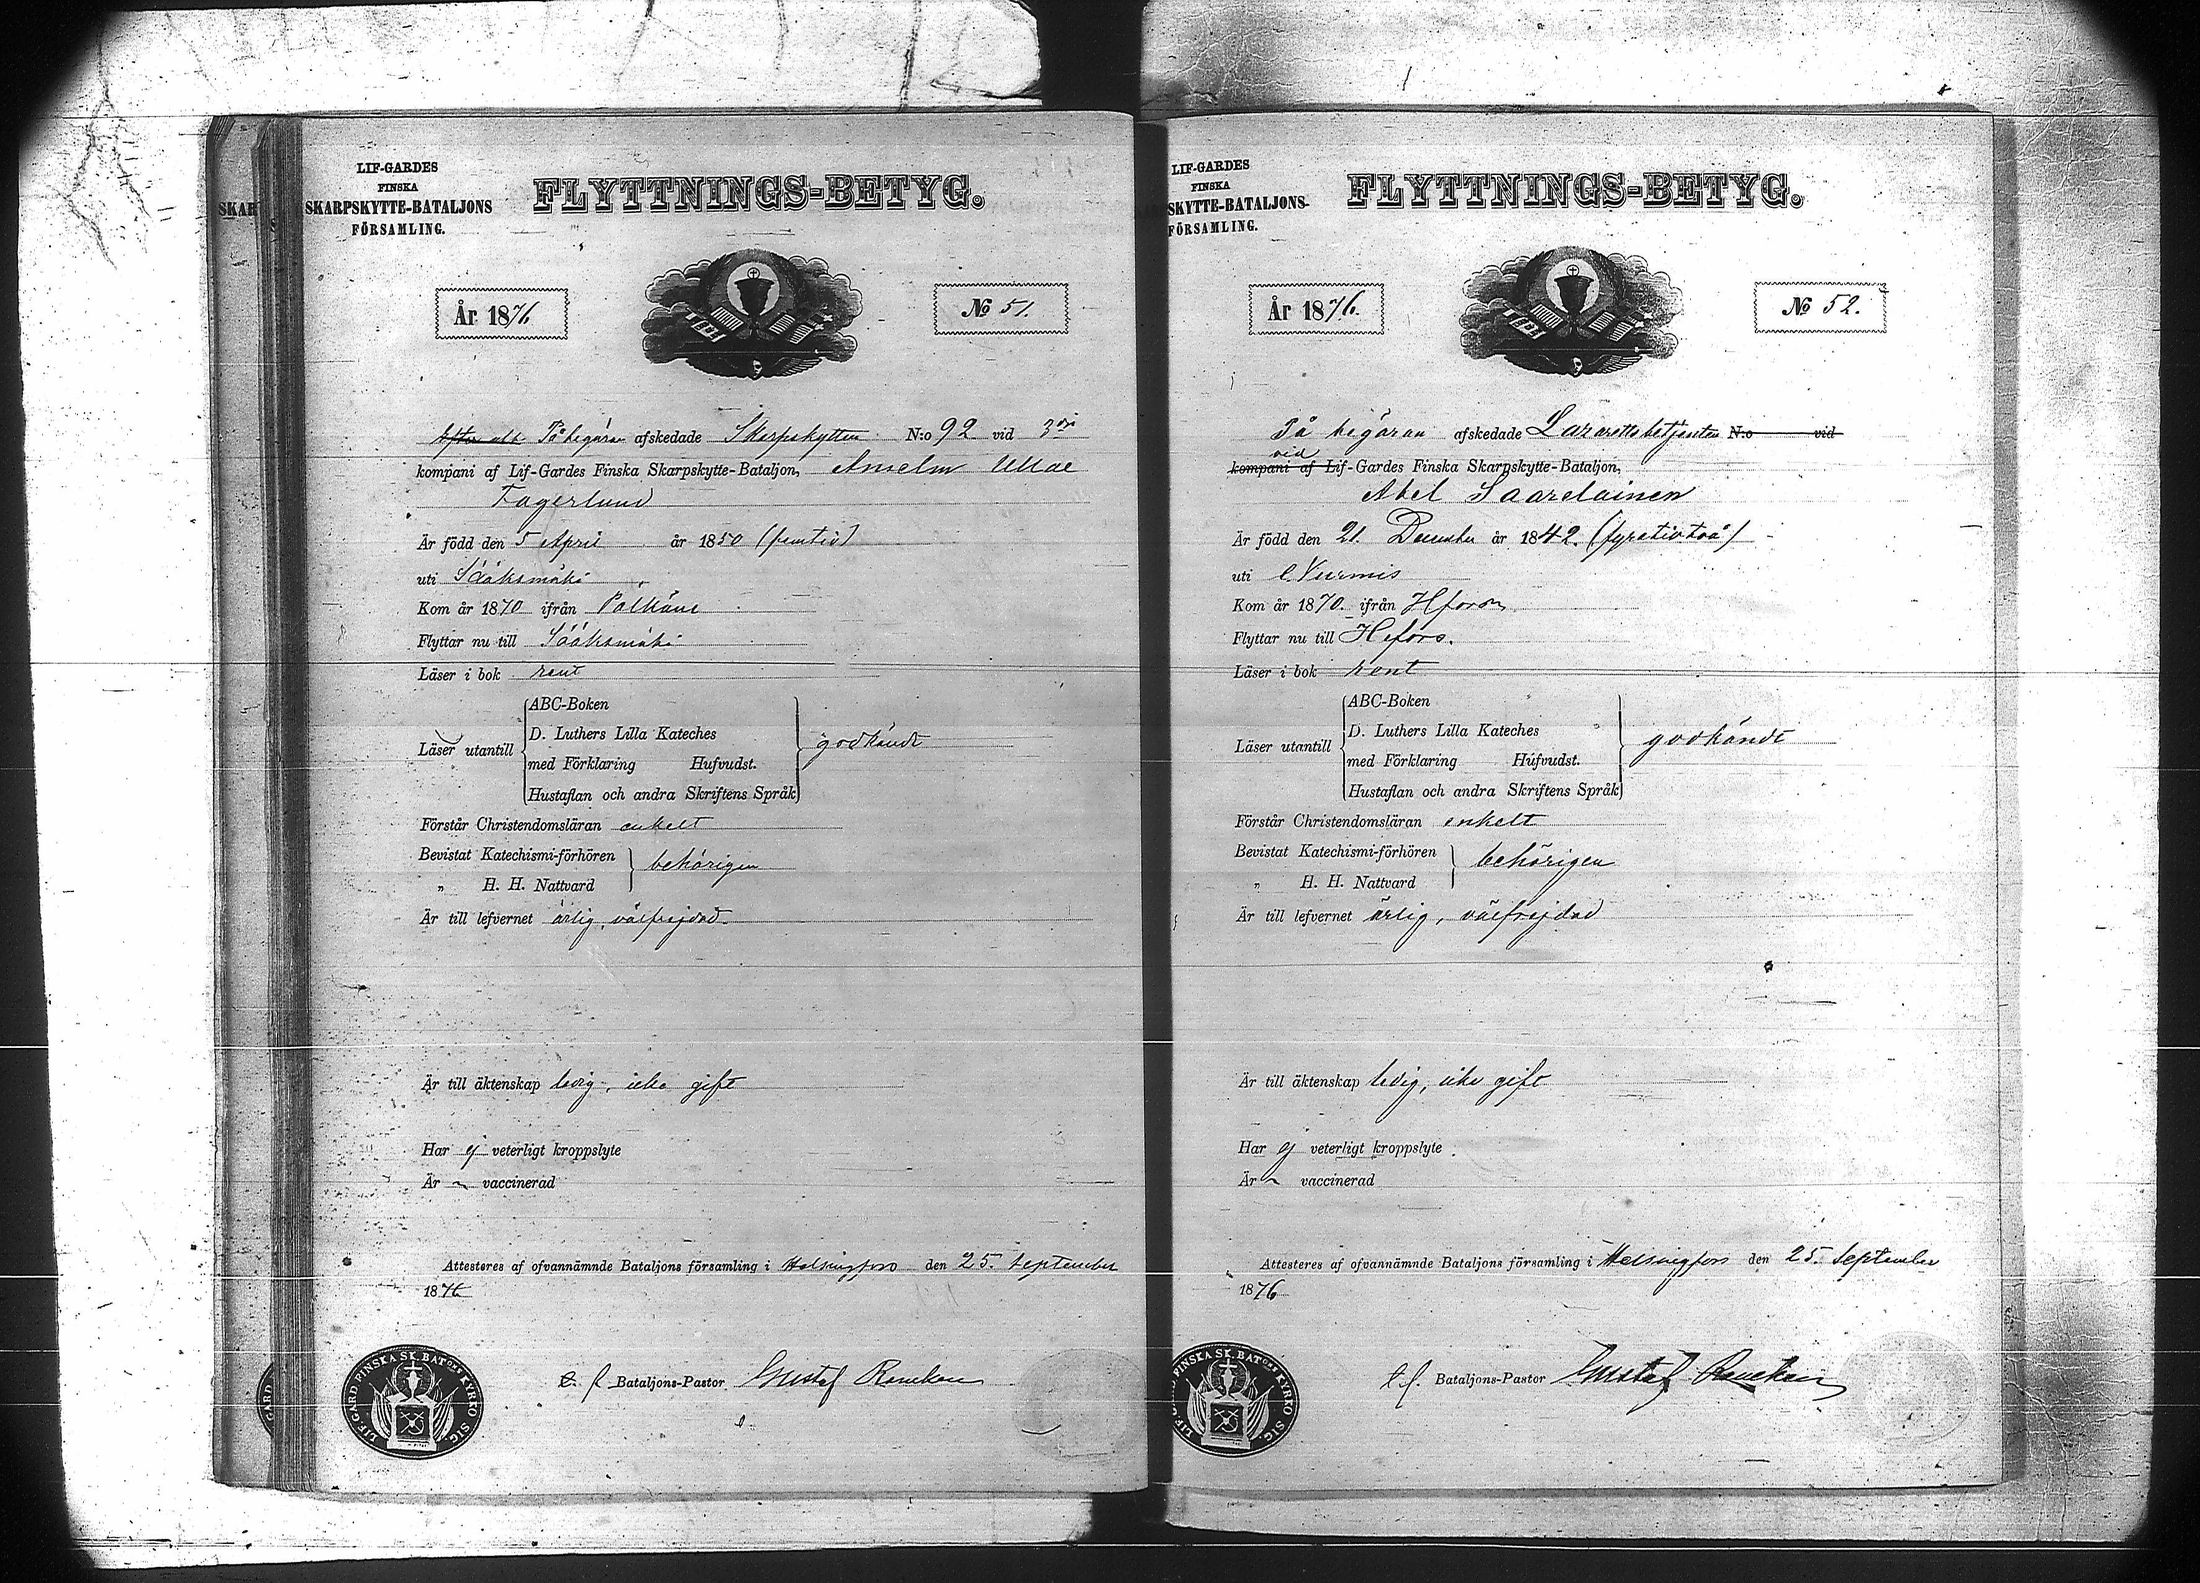 LIF-GARDES
FINSKA
SKARPSKYTTE-BATALJONS
FÖRSAMLING.
FLYTTNINGS-BETYG.
År 1876
No 51.
Efter alt På begäran afskedade Skarpskytten N:o 92 vid 3dje
kompani af Lif-Gardes Finska Skarpskytte-Bataljon, Anselm
Fagerlund
Är född den 5 April år 1850 (femtio)
uti Sääksmäki
Kom år 1870 ifrån Pälkäne
Flyttar nu till Sääksmäki
Läser i bok rent
Läser utantill
ABC-Boken
D. Luthers Lilla Kateches
med Förklaring Hufvudst.
Hustaflan och andra Skriftens Språk
godkändt
Förstår Christendomsläran enkelt
Bevistat Katechismi-förhören
„ H. H. Nattvard
behörigen
Är till lefvernet ärlig, välfrejdad
Är till äktenskap ledig, icke gift
Har ej veterligt kroppslyte
Är vaccinerad
Attesteres af ofvannämnde Bataljons församling i Helsingfors den 25 September
1876
LIF-GARD FINSKA SK. BATONS KYRKO SIG.
e. f. Bataljons-Pastor Gustaf Rancken
SKAR
LIF-GARDES
FINSKA
SKYTTE-BATALJONS-
FÖRSAMLING.
FLYTTNINGS-BETYG.
År 1876.
No 52.
På begäran afskedade Lazarettsbetjenten N:o vid
vid
kompani af Lif-Gardes Finska Skarpskytte-Bataljon,
Abel Saarelainen
Är född den 21. December år 1842. (fyratiotvå)
uti C. Nurmis
Kom år 1870. ifrån Hfors
Flyttar nu till Hefors.
Läser i bok rent
Läser utantill
ABC-Boken
D. Luthers Lilla Kateches
med Förklaring Hufvudst.
Hustaflan och andra Skriftens Språk
godkändt
Förstår Christendomsläran enkelt
Bevistat Katechismi-förhören
„ H. H. Nattvard
behörigen
Är till lefvernet ärlig, välfrejdad
Är till äktenskap ledig, icke gift
Har ej veterligt kroppslyte
Är vaccinerad
Attesteres af ofvannämnde Bataljons församling i Helsingfors den 25. September
1876
LIF-GARD FINSKA SK. BATONS KYRKO SIG.
e. f. Bataljons-Pastor Gustaf Rancken